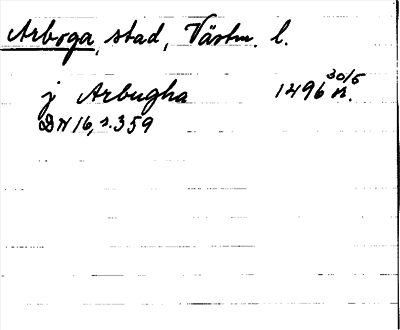 Arboga, stad, Västm. l.
j Arbugha 1496 30/5 n.
DN 16, s. 359